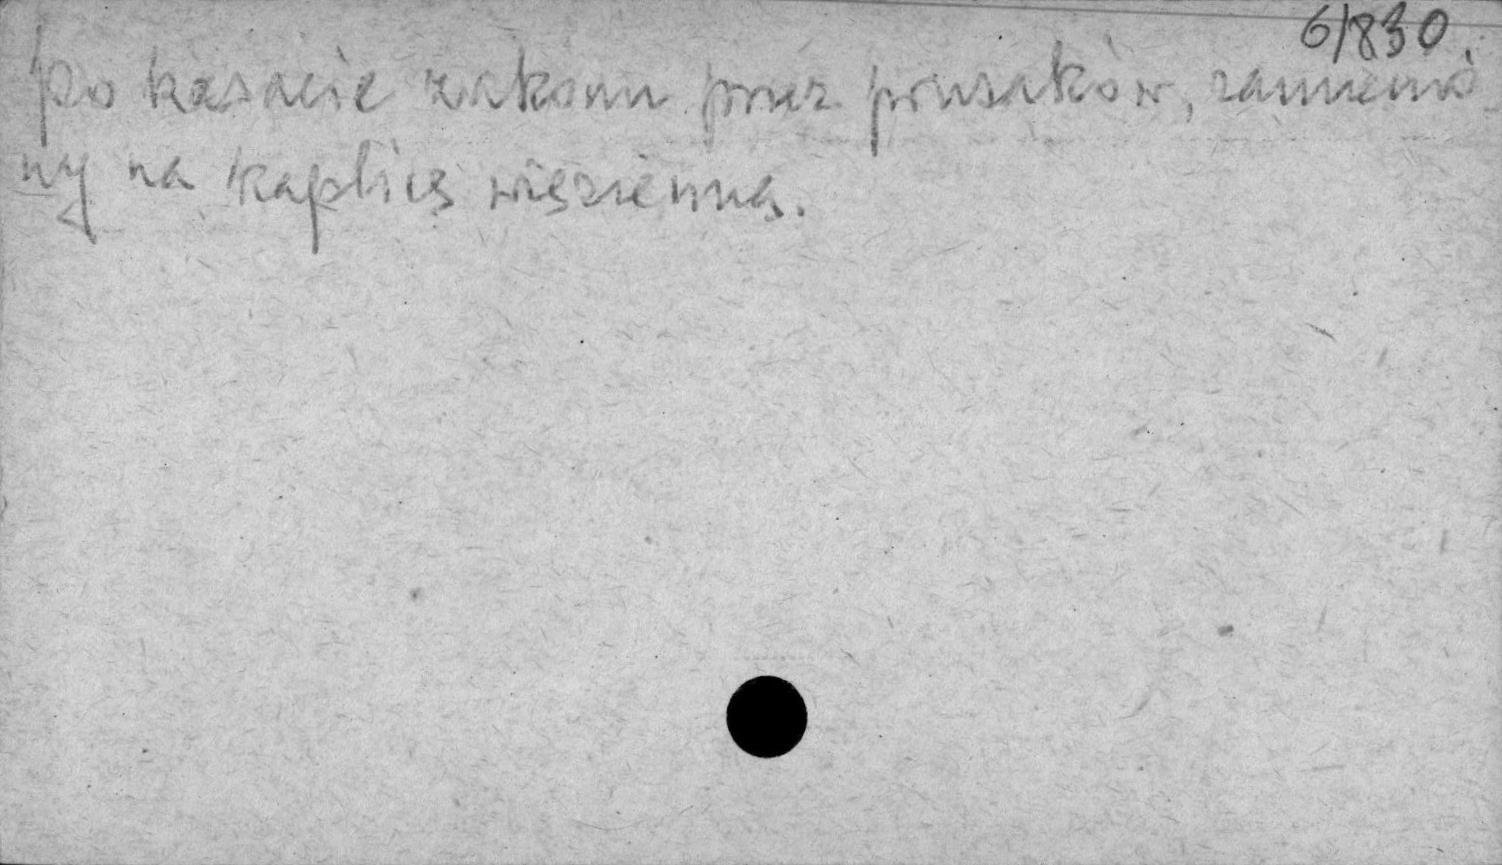 6/830.
po kasacie zakonu przez prusaków, zamienio-
ny na kaplicę więzienną.